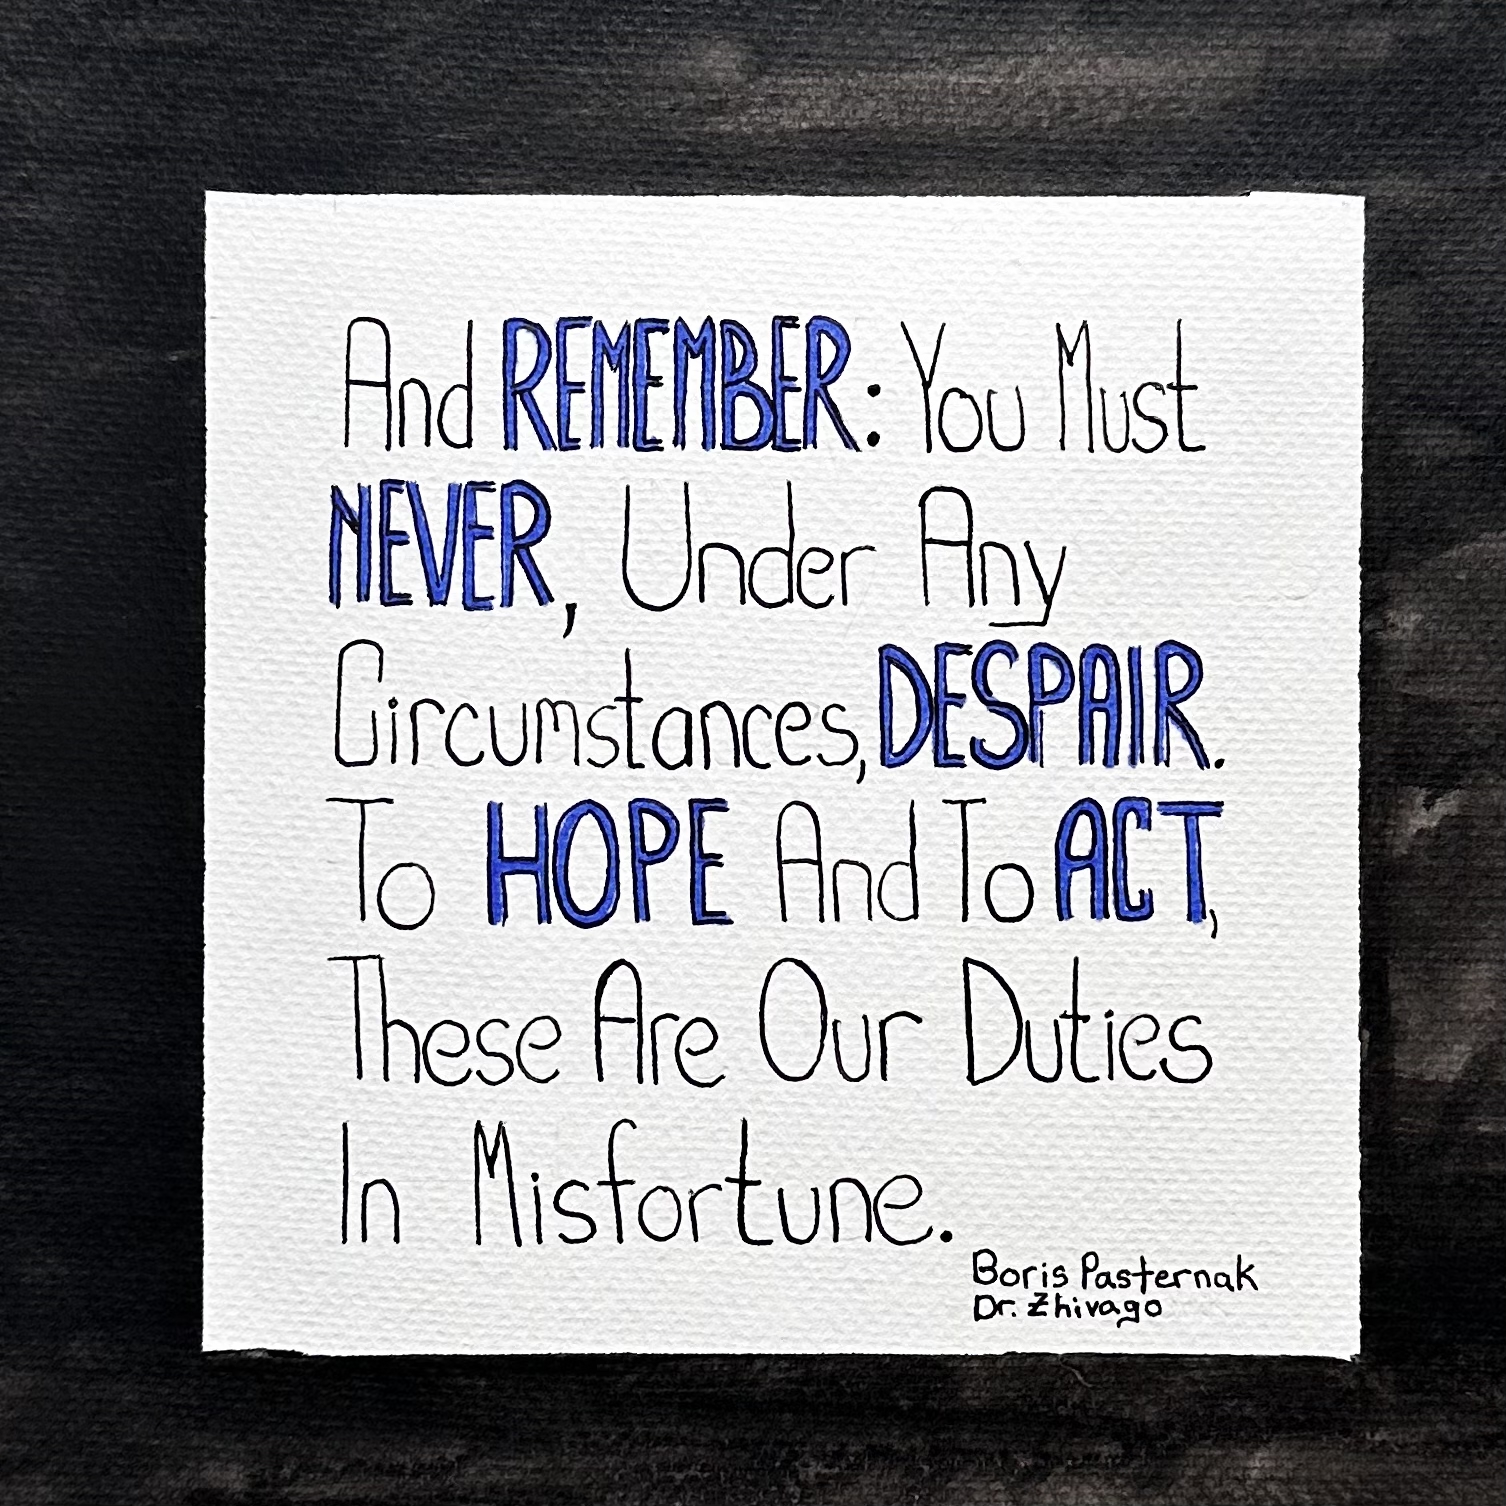 And REMEMBER: You Must
NEVER, Under Any
Circumstances, DESPAIR.
To HOPE And To ACT,
These Are Our Duties
In Misfortune.
Boris Pasternak
Dr. Zhivago